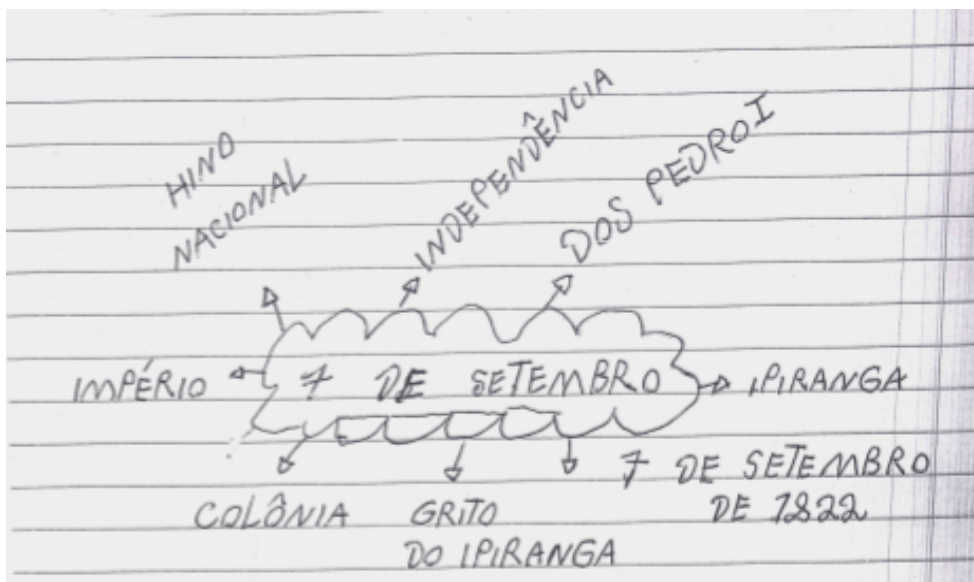 HINO
NACIONAL
INDEPENDÊNCIA
DOS PEDRO I
IMPÉRIO
7 DE SETEMBRO
IPIRANGA
COLÔNIA
GRITO
DO IPIRANGA
7 DE SETEMBRO
DE 1822